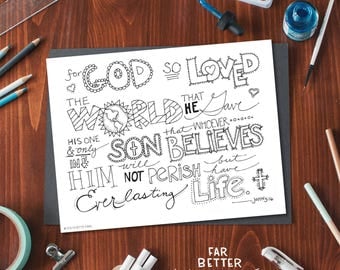 for GOD so LOVED
THE WORLD THAT HE Gave
HIS ONE & only SON that WHOEVER BELIEVES
IN HIM will NOT PERISH but have
Everlasting Life.
John 3:16
FAR
BETTER